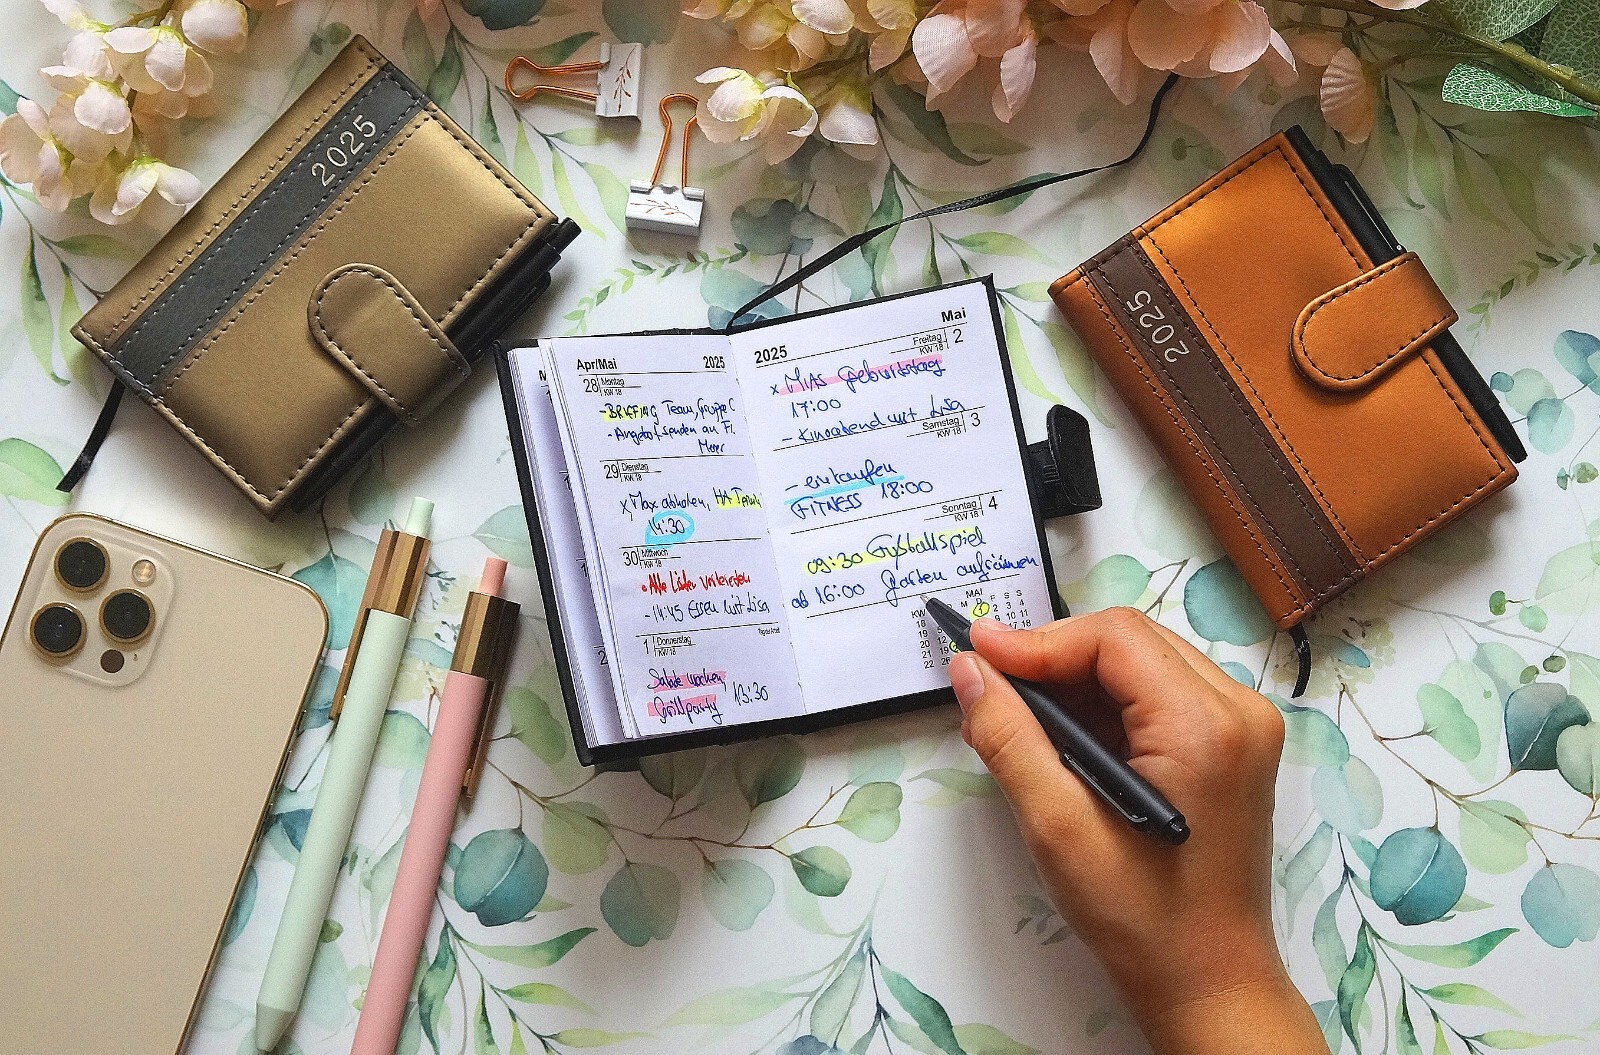 2025
2025
Apr/Mai 2025
28 Montag
KW 18
-BRIEFING Team, Gruppe C
- Angebot senden an Fi.
Meier
29 Dienstag
KW 18
x Max abholen, HA
14:30
30 Mittwoch
KW 18
• Alle Listen vorbereiten
- 14:45 Essen mit Lisa
1 Donnerstag
KW 18
Tag der Arbeit
Salate machen,
Grillparty 13:30
2025 Mai
Freitag 2
KW 18
x MIAS Geburtstag
17:00
- Kinoabend mit Lisa
Samstag 3
KW 18
- einkaufen
FITNESS 18:00
Sonntag 4
KW 18
09:30 Fußballspiel
ab 16:00 Garten aufräumen
MAI
KW M D F S S
18 1 2 3 4
19 9 10 11
20 12 17 18
21 19
22 26